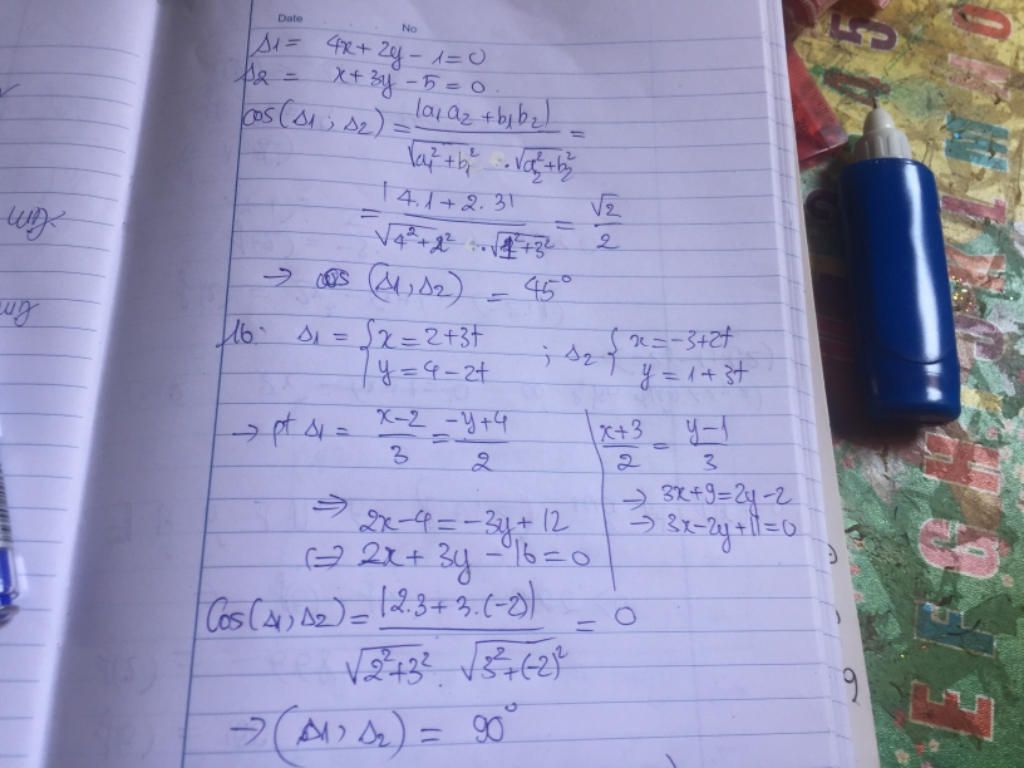 Date No
Δ1 = 4x + 2y - 1 = 0
Δ2 = x + 3y - 5 = 0.
cos(Δ1; Δ2) = |a1a2 + b1b2| / √(a1² + b1²) . √(a2² + b2²) =
= |4.1 + 2.3| / √(4² + 2²) . √(1² + 3²) = √2 / 2
→ cos (Δ1; Δ2) = 45°
16: Δ1 = { x = 2 + 3t ; y = 4 - 2t ; Δ2 { x = -3 + 2t ; y = 1 + 3t
→ pt Δ1 = (x - 2)/3 = (-y + 4)/2
(x + 3)/2 = (y - 1)/3
→ 3x + 9 = 2y - 2
→ 3x - 2y + 11 = 0
⇒ 2x - 4 = -3y + 12
⇔ 2x + 3y - 16 = 0
Cos(Δ1; Δ2) = |2.3 + 3.(-2)| / √(2² + 3²) . √(3² + (-2)²) = 0
→ (Δ1; Δ2) = 90°
9